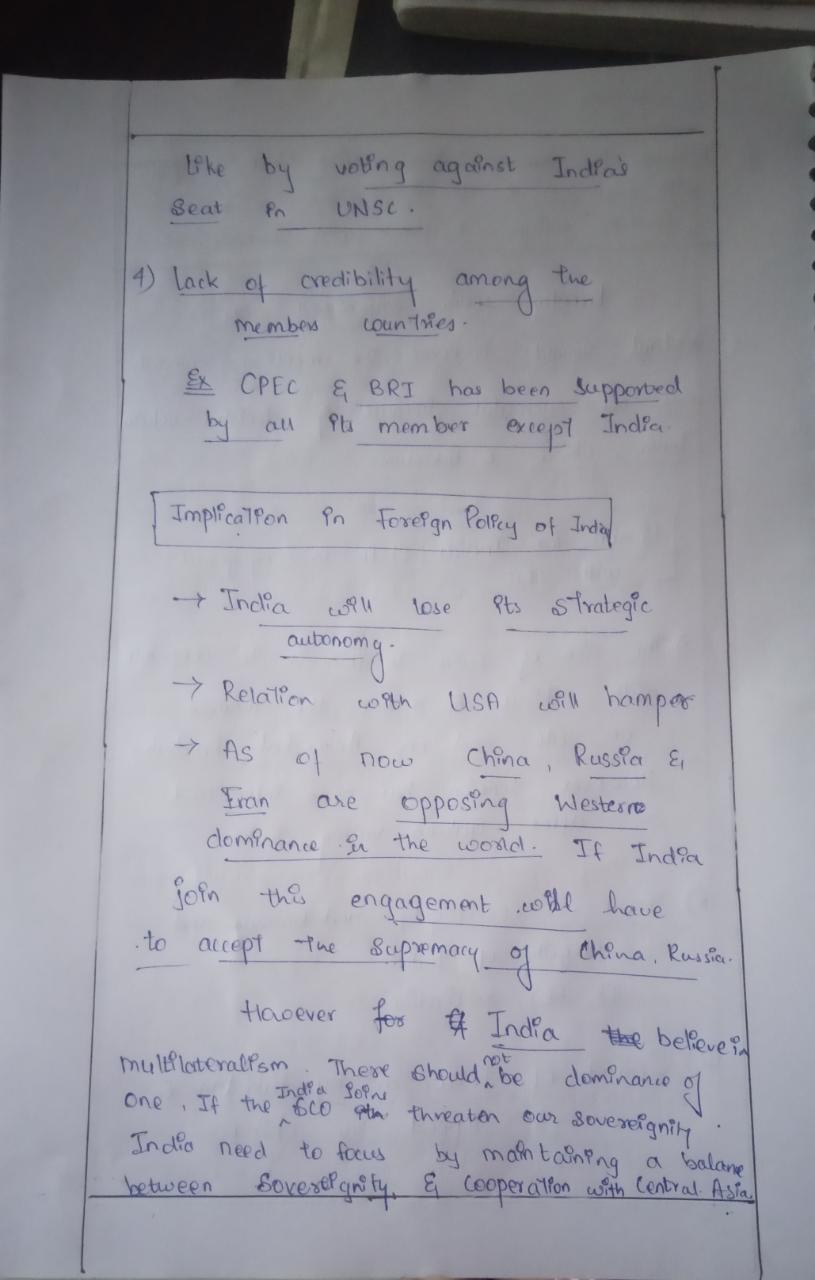 like by voting against India's
Seat in UNSC.
4) Lack of credibility among the
members countries.
Ex CPEC & BRI has been supported
by all its member except India.
Implication in Foreign Policy of India
→ India will lose its strategic
autonomy.
→ Relation with USA will hamper
→ As of now China, Russia &
Iran are opposing Western
dominance in the world. If India
join this engagement will have
to accept the supremacy of China, Russia.
However for India the believe in
multilateralism. There should not be dominance of
one, If the India join SCO threaten our sovereignity.
India need to focus by maintaining a balane
between sovereignity, & cooperation with Central Asia